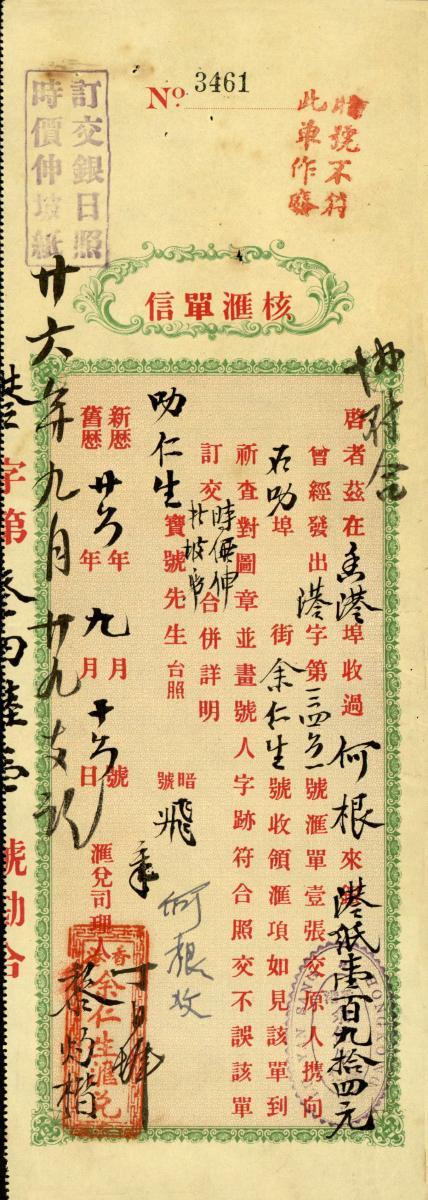 No. 3461
暗號不符
此單作廢
訂交銀日照
時價伸坡紙
信單滙核
協財合
啓者茲在香港埠收過何根來銀港紙壹百九拾四元
曾經發出港字第三四六一號滙單壹張交原人携向
在叻埠 街余仁生號收領滙項如見該單到
祈査對圖章並畫號人字跡符合照交不誤該單
訂交時價伸坡紙合併詳明
叻仁生寶號先生台照
暗號飛
何根收
新歷
舊歷
廿六年九月十六號
年 月 日
滙兌司理人
香港余仁生滙兌
廿六年九月廿九支訖
港字第叁四陸壹號勘合